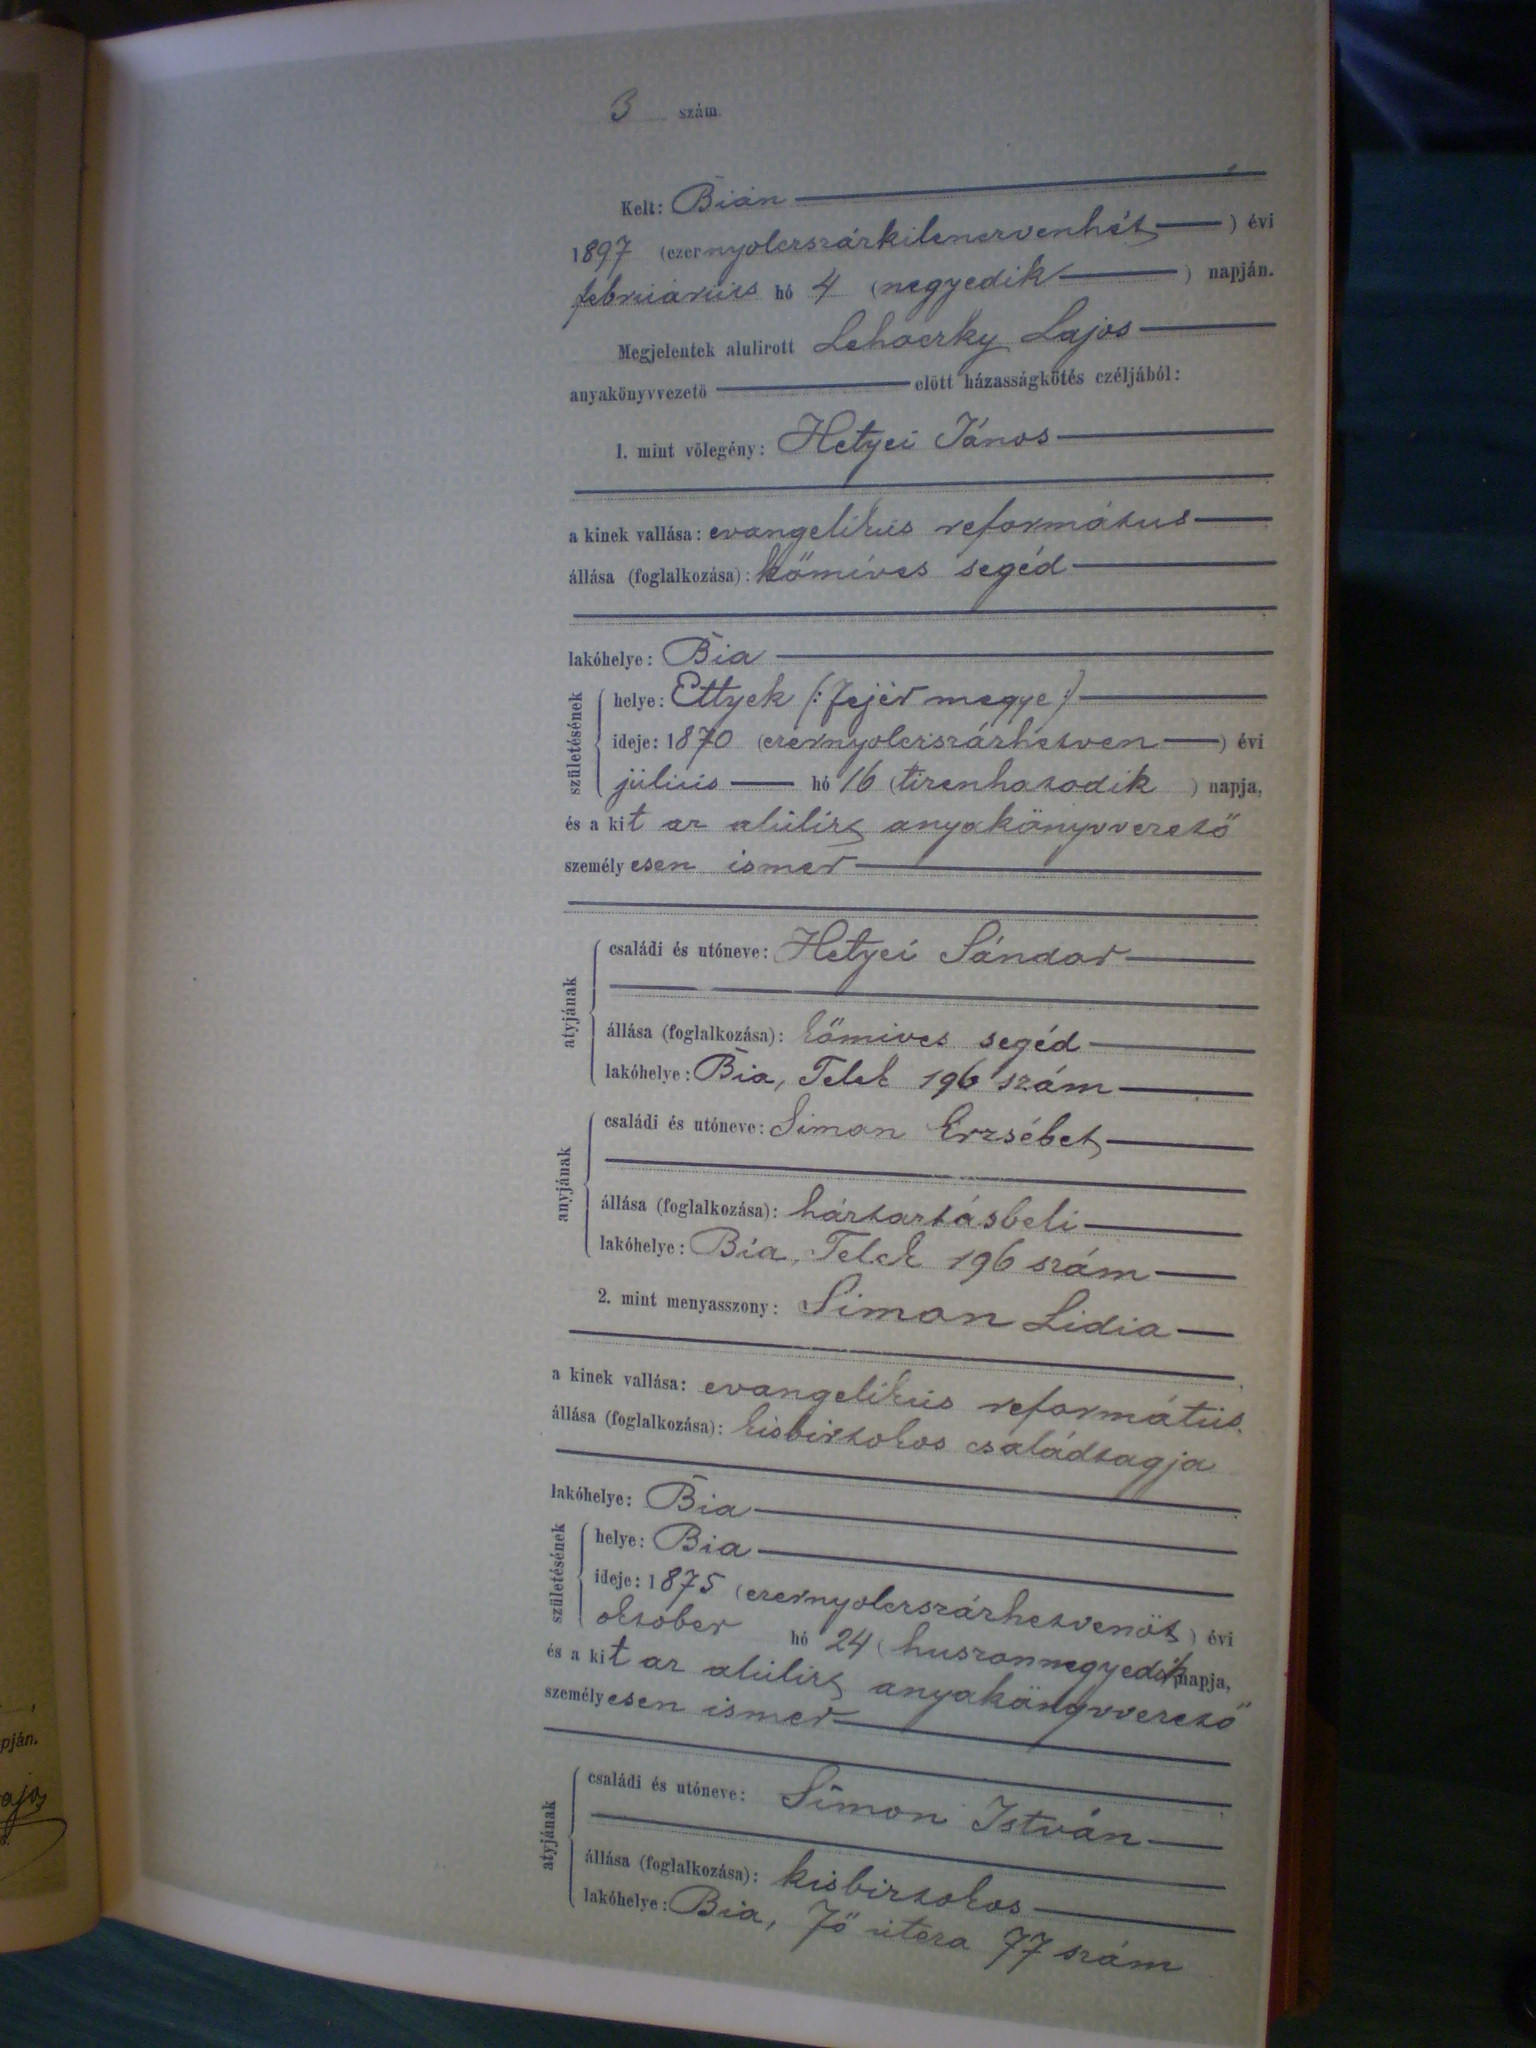 3 szám.
Kelt: Bián
1897 (ezernyolczszázkilenczvenhét) évi
februárius hó 4 (negyedik) napján.
Megjelentek alulirott Lehoczky Lajos
anyakönyvvezető előtt házasságkötés czéljából:
1. mint vőlegény: Hetyei János
a kinek vallása: evangelikus református
állása (foglalkozása): kőmíves segéd
lakóhelye: Bia
születésének
helye: Ettyek (: Fejér megye :)
ideje: 1870 (ezernyolczszázhetven) évi
július hó 16 (tizenhatodik) napja,
és a kit az alulirt anyakönyvvezető
személyesen ismer
atyjának
családi és utóneve: Hetyei Sándor
állása (foglalkozása): kőmives segéd
lakóhelye: Bia, Telek 196 szám
anyjának
családi és utóneve: Simon Erzsébet
állása (foglalkozása): háztartásbeli
lakóhelye: Bia, Telek 196 szám
2. mint menyasszony: Simon Lidia
a kinek vallása: evangelikus református
állása (foglalkozása): kisbirtokos családtagja
lakóhelye: Bia
születésének
helye: Bia
ideje: 1875 (ezernyolczszázhetvenöt) évi
október hó 24 (huszonnegyedik) napja,
és a kit az alulirt anyakönyvvezető
személyesen ismer
atyjának
családi és utóneve: Simon István
állása (foglalkozása): kisbirtokos
lakóhelye: Bia, Fő utcza 77 szám
pján.